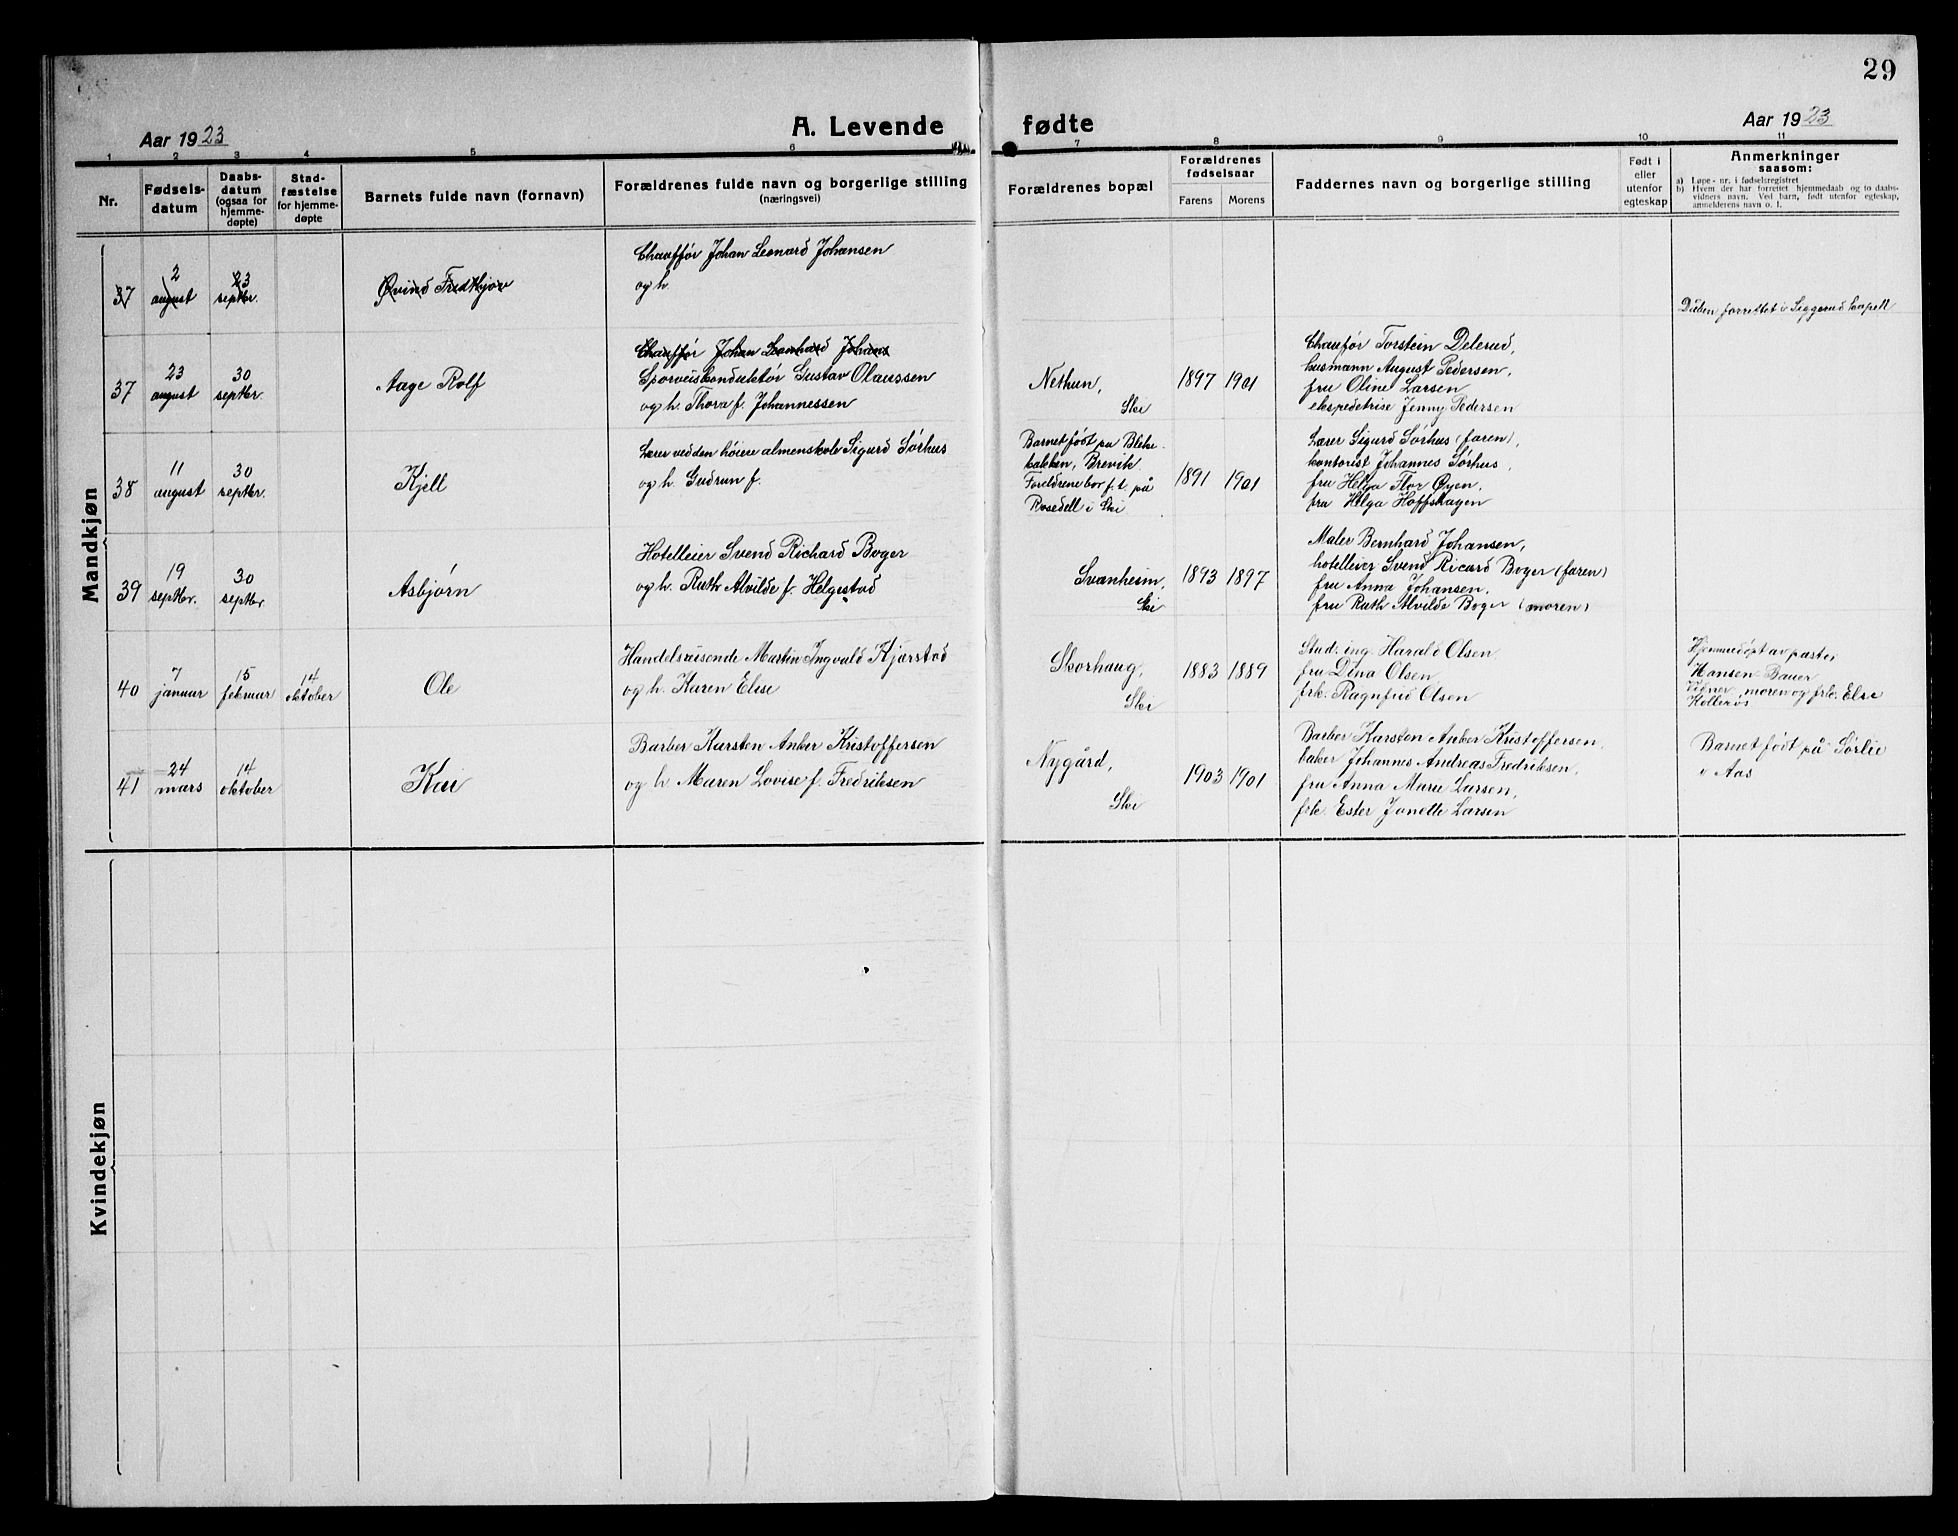 29
Aar 1923
A. Levende fødte
Aar 1923
1 2 3 4 5 6 7 8 9 10 11
Nr.
Fødsels-
datum
Daabs-
datum
(ogsaa for
hjemme-
døpte)
Stad-
fæstelse
for hjemme-
døpte
Barnets fulde navn (fornavn)
Forældrenes fulde navn og borgerlige stilling
(næringsvei)
Forældrenes bopæl
Forældrenes
fødselsaar
Farens Morens
Faddernes navn og borgerlige stilling
Født i
eller
utenfor
egteskap
Anmerkninger
saasom:
a) Løpe-nr. i fødselsregistret
b) Hvem der har forrettet hjemmedaab og to daabs-
vidners navn. Ved barn, født utenfor egteskap,
anmelderens navn o. l.
Mandkjøn
37
2
august
23
septbr.
Øvind Fredthjov
Chauffør Johan Leonard Johansen
og h.
Dåben forrettet i Siggerud kapell
37
23
august
30
septbr.
Aage Rolf
Chauffør Johan Leonhard Johans
Sporveiskonduktør Gustav Olaussen
og h. Thora f. Johannessen
Nethun,
Ski
1897 1901
Chaufør Torstein Delerud,
husmann August Pedersen,
fru Oline Larsen
ekspedetrise Jenny Pedersen
38
11
august
30
septbr.
Kjell
Lærer ved den høiere almenskole Sigurd Sørhus
og h. Gudrun f.
Barnet født på Bleke-
bakken, Brevik.
Foreldrene bor f.t. på
Rosedell i Ski
1891 1901
Lærer Sigurd Sørhus (faren),
kontorist Johannes Sørhus,
fru Helga Flor Øyen,
fru Helga Hoffshagen
39
19
septbr.
30
septbr
Asbjørn
Hotelleier Svend Richard Boger
og h. Ruth Alvilde f. Helgestad
Svanheim,
Ski
1893 1897
Maler Bernhard Johansen,
hotelleier Svend Ricard Boger (faren)
fru Anna Johansen,
fru Ruth Alvilde Boger (moren)
40
7
januar
15
februar
14
oktober
Ole
Handelsreisende Martin Ingvald Kjærstad
og h. Karen Elise
Skorhaug,
Ski
1883 1889
Stud. ing. Harald Olsen
fru Dina Olsen
frk. Ragnfrid Olsen
Hjemmedøpt av pastor
Hansen-Bauer
Vidner, moren og frk. Else
41
24
mars
14
oktober
Kai
Barber Karsten Anker Kristoffersen
og h. Maren Lovise f. Fredriksen
Nygård,
Ski
1903 1901
Barber Karsten Anker Kristoffersen,
baker Johannes Andreas Fredriksen,
fru Anna Marie Larsen,
frk. Ester Janette Larsen
Barnet født på Sørlie
i Aas
Kvindekjøn